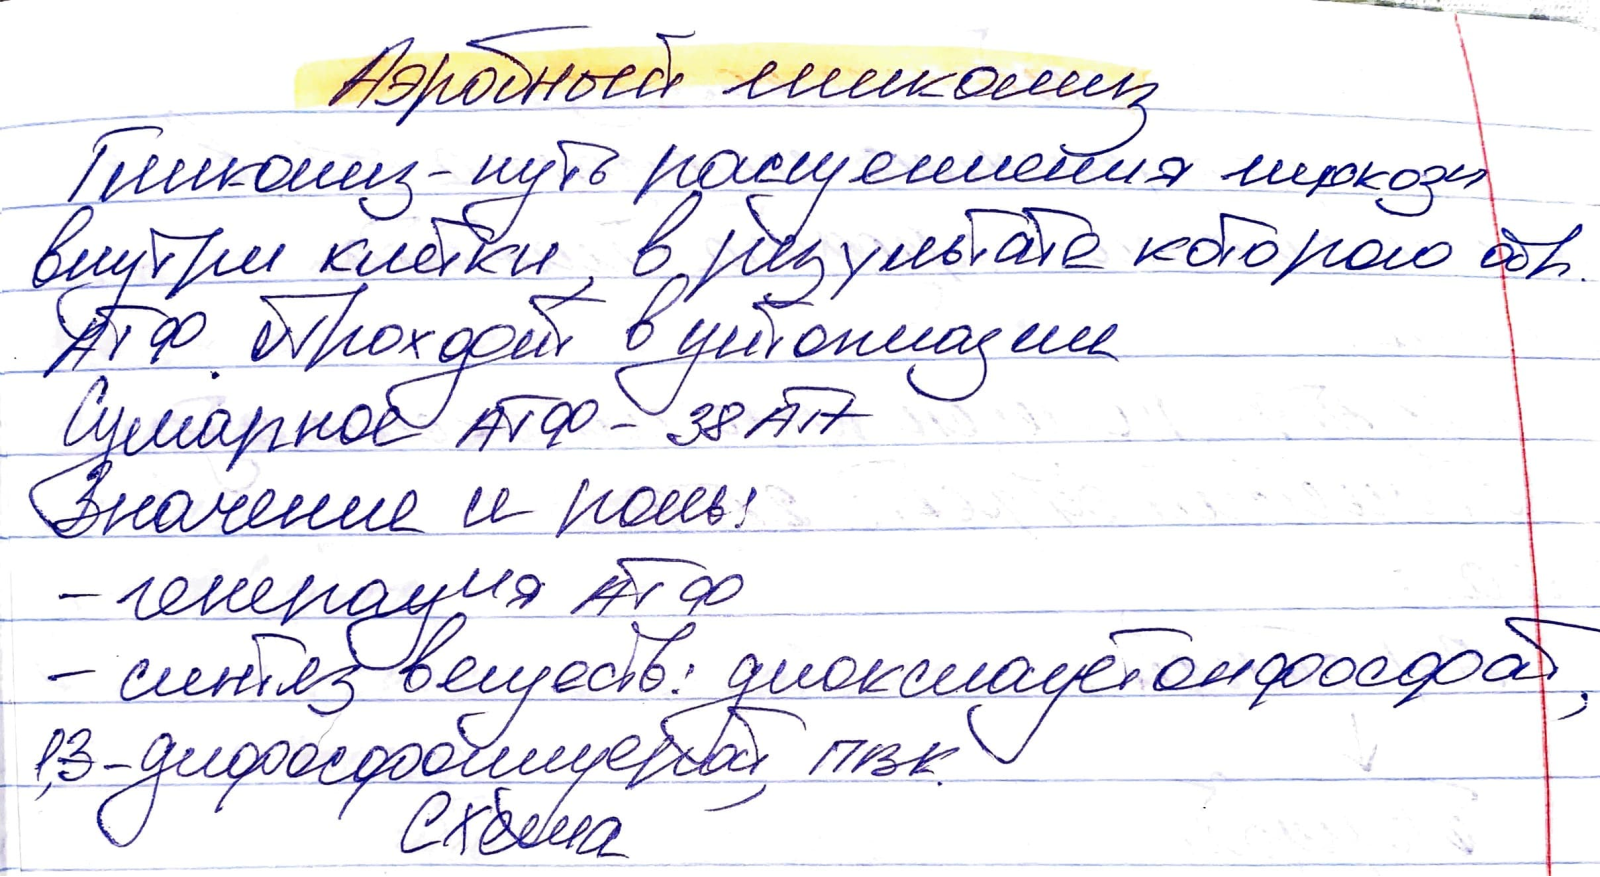 Аэробный гликолиз
Гликолиз - путь расщепления глюкозы
внутри клетки, в результате которого обр.
АТФ. Проходит в цитоплазме
Сумарное АТФ - 38 АТФ
Значение и роль:
- генерация АТФ
- синтез веществ: диоксиацетонфосфат,
1,3-дифосфоглицерат, ПВК.
Схема